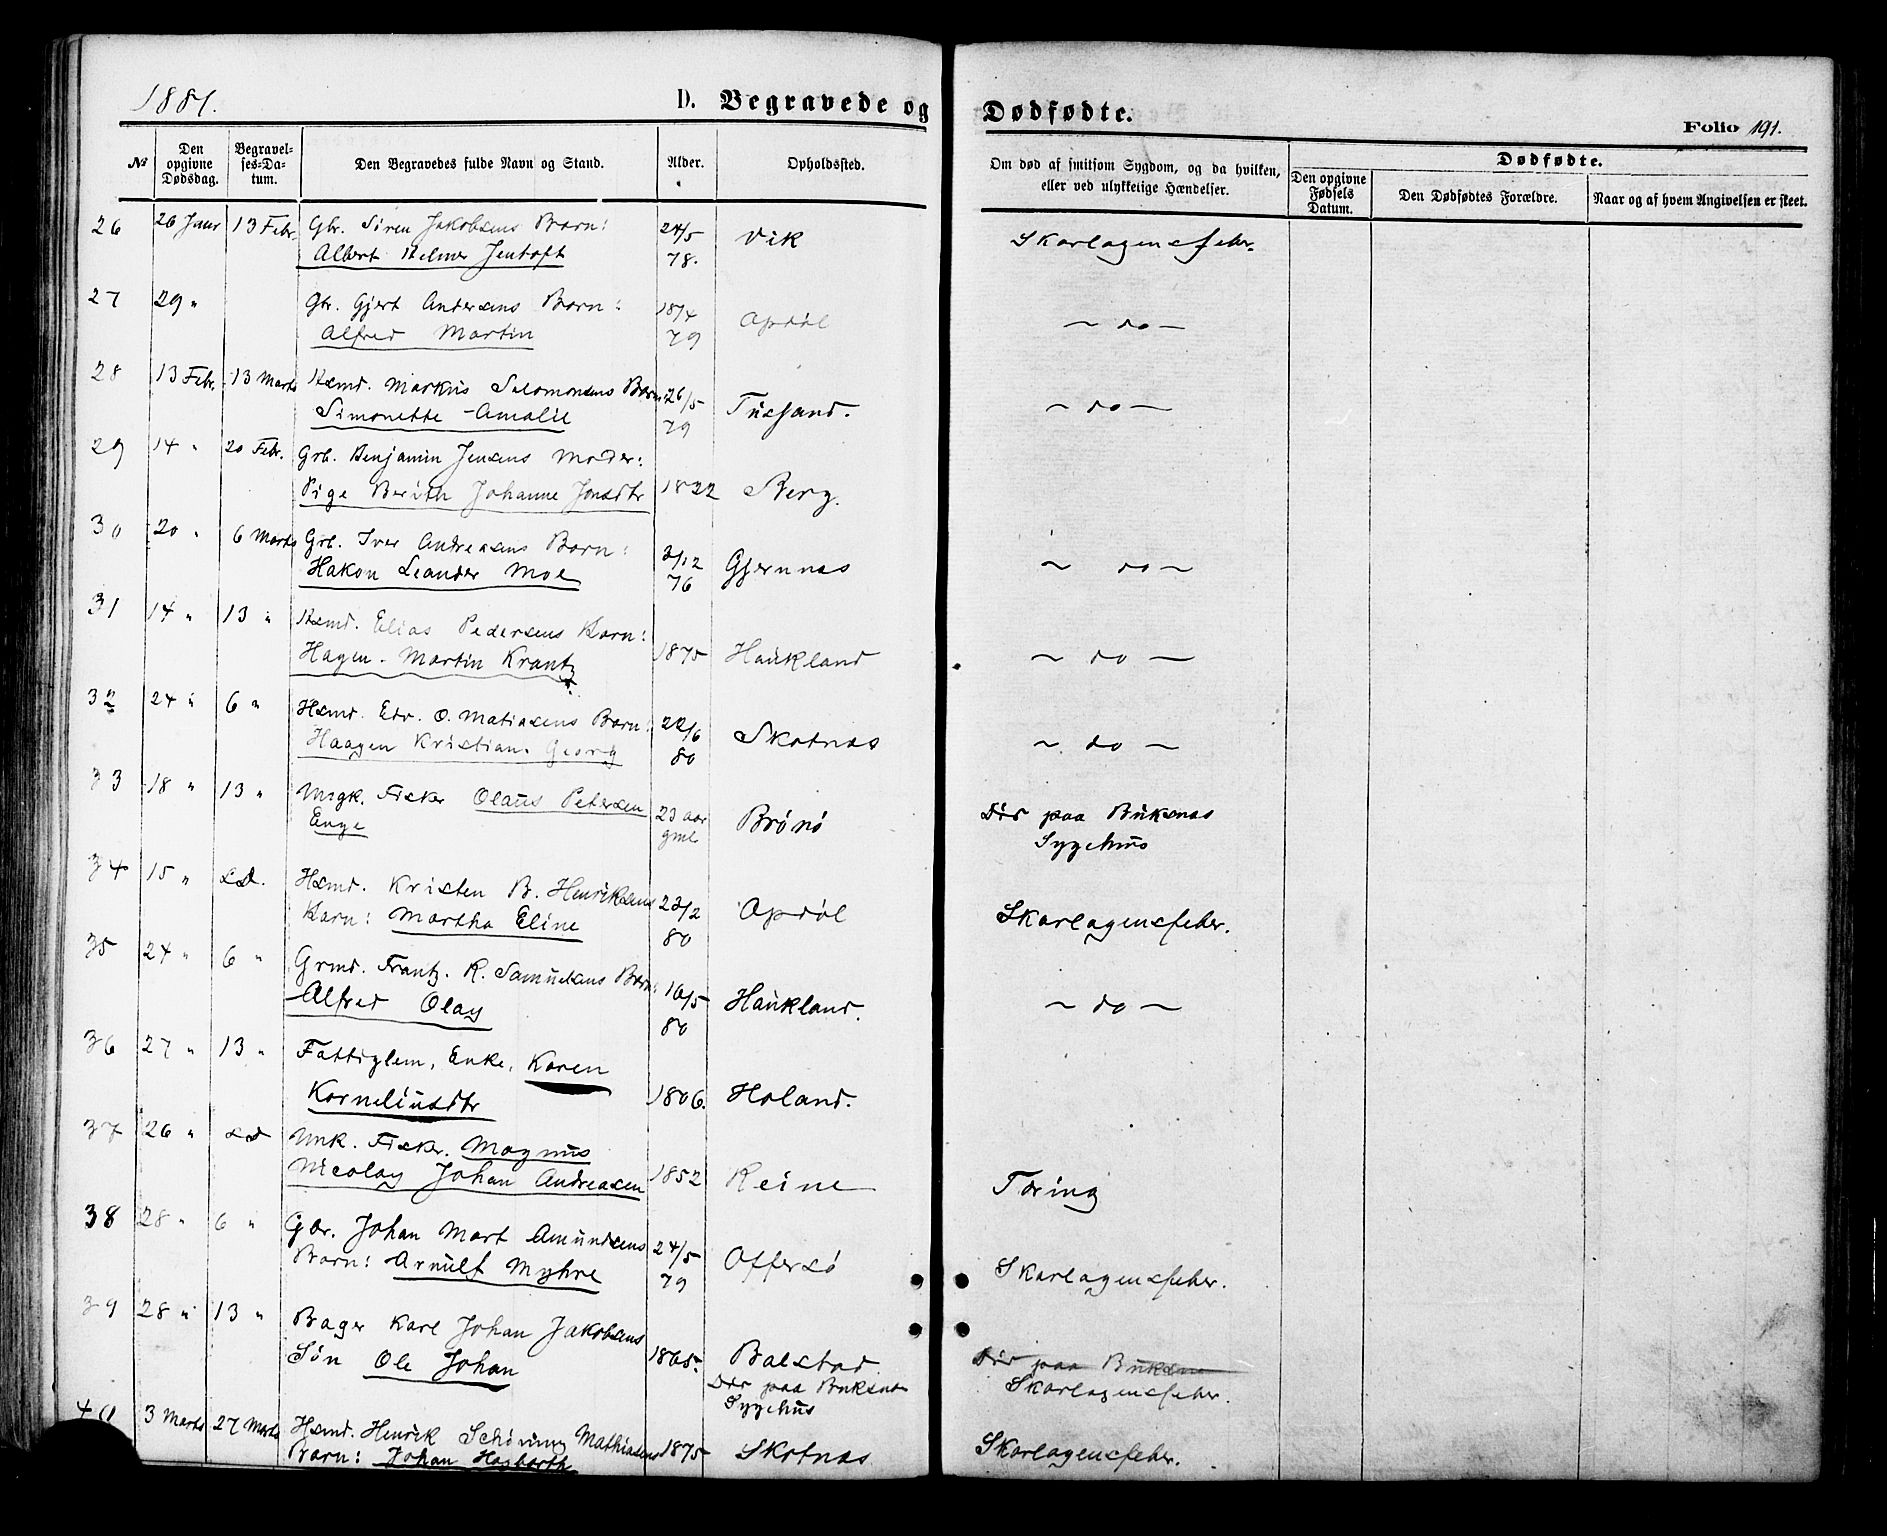 1881.
D. Begravede og Dødfødte.
Folio 191.
№
Den opgivne Dødsdag.
Begravelses-Datum.
Den Begravedes fulde Navn og Stand.
Alder.
Opholdssted.
Om død af smitsom Sygdom, og da hvilken, eller ved ulykkelige Hændelser.
Dødfødte.
Den opgivne Fødsels Datum.
Den Dødfødtes Forældre.
Naar og af hvem Angivelsen er skeet.
26 26 Janr 13 Febr. Gbr. Sören Jakobsens Barn: 24/5 Vik Skarlagensfeber.
Albert Helmer Jentoft 78.
27 29 " Gbr. Gjert Andersens Barn: 18/4 Opdöl ~ do ~
Alfred Martin 79
28 13 Febr. 13 Marts Hsmd. Markus Salomonsens Barn 26/5 Tussand. ~ do ~
Simonette Amalie 79
29 14 " 20 Febr. Grb. Benjamin Jensens Moder:
Pige Berith Johanne Jonsdtr 1822 Berg.
30 20 " 6 Marts Grb. Iver Andreasens Barn: 3/12 Gjernnas ~ do ~
Hakon Leander Moe 76
31 14 " 13 " Hsmd. Elias Pedersens Barn:
Hagen Martin Krantz 1875 Haukland ~ do ~
32 24 " 6 " Hsmd. Edv. O. Matiasens Barn: 22/6 Skotnas ~ do ~
Haagen Kristian Georg 80
33 18 " 13 " Ungk. Fisker Olaus Petersen 23 aar Brönö Död paa Buksnas
Enge gml Sygehus
34 15 " sd. Hsmd. Kristen B. Henriksens 23/2 Opdöl Skarlagensfeber.
Barn: Martha Eline 80
35 24 " 6 " Grmd. Frantz R. Samuelsens Barn: 16/5 Haukland. ~ do ~
Alfred Olay 80
36 27 " 13 " Fattiglem, Enke, Karen
Korneliusdtr 1806. Holand.
37 26 " sd Unk. Fisker. Magnus
Nicolay Johan Andreasen 1852 Reine Tæring
38 28 " 6 " Gbr. Johan Mart Amundsens 24/5 Offersö Skarlagensfeber.
Barn: Arnulf Myhre 79
39 28 " 13 " Bager Karl Johan Jakobsens
Sön Ole Johan 1865. Balstad Död paa Buksna
Död paa Buksnas Skarlagensfeber.
Sygehus
40 3 Marts 27 Marts Hsmd. Henrik Schöning Mathiasens 1875 Skotnas Skarlagensfeber.
Barn: Johan Hagbarth